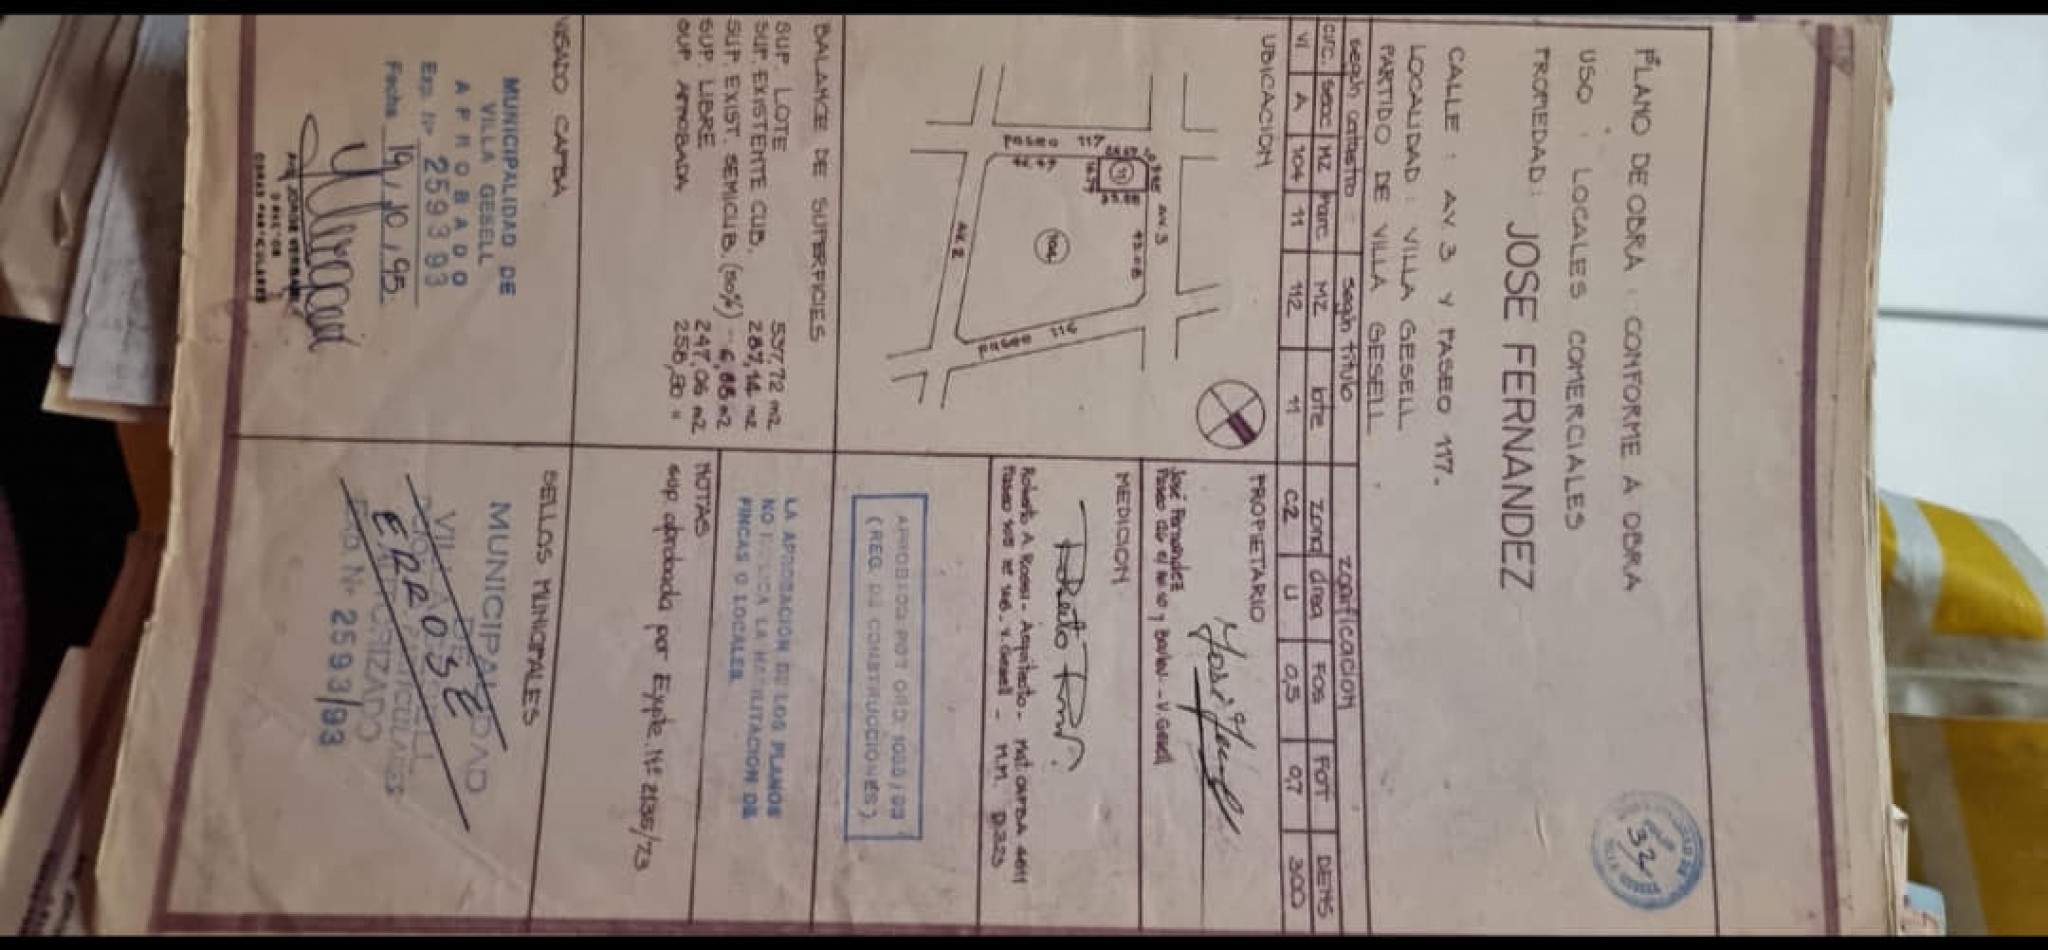 PLANO DE OBRA : CONFORME A OBRA
USO : LOCALES COMERCIALES
PROPIEDAD : JOSE FERNANDEZ
CALLE : AV. 3 Y PASEO 117.
LOCALIDAD : VILLA GESELL
PARTIDO DE VILLA GESELL
según catastro según título zonificacion
circ. secc MZ Parc MZ lote zona área FOS FOT DENS
VI A 104 11 112 11 C2 U 0,5 0,7 300
UBICACION
paseo 117
AV. 3
11
104
43.08
AV. 2
paseo 116
PROPIETARIO
José Fernandez
MEDICION
Roberto A. Rossi - Arquitecto - Mat. CAPBA
V. Gesell - M.M. D.323
BALANCE DE SUPERFICIES
SUP. LOTE 537,72 m2
SUP. EXISTENTE CUB. 287,14 m2
SUP. EXIST. SEMICUB. (50%) m2
SUP. LIBRE 247,06 m2
SUP. APROBADA
(REG. DE CONSTRUCCIONES)
LA APROBACION DE LOS PLANOS
NO IMPLICA LA HABILITACION DE
FINCAS O LOCALES.
NOTAS
sup. aprobada por Expte. Nº 2135/73
VISADO CAPBA
MUNICIPALIDAD DE
VILLA GESELL
APROBADO
Exp. Nº 2593 93
Fecha 19/10/95
DIRECTOR
OBRAS PARTICULARES
SELLOS MUNICIPALES
MUNICIPALIDAD
DE
Nº 2593/93
32